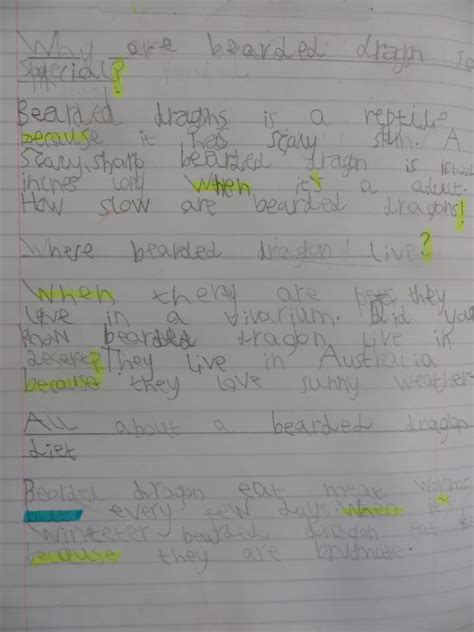 Why are bearded dragon so
special?
Bearded dragons is a reptile
because it has scary skin. A
scary, sharp bearded dragon is
inches long when it's a adult.
How slow are bearded dragons!
Where bearded dragon live?
When they are pets, they
live in a vivarium. Did you
know bearded dragon live in
desert? They live in Australia
because they love sunny weather.
All about a bearded dragon
diet
Bearded dragon eat meat worms
every few days when it's
bearded dragon
because they are brumate.